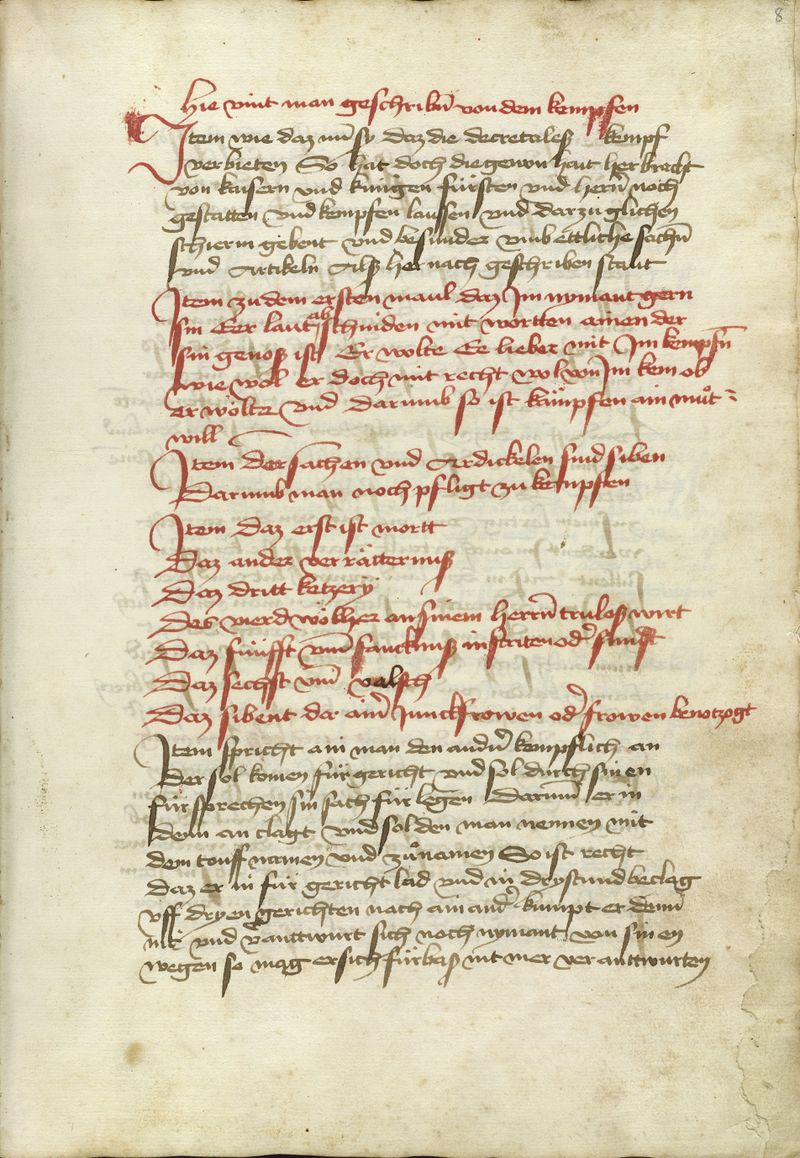 8
Hie vint man geschribñ von dem kempfen
Item wie daz nuͦ sy daz die decretaleß kempf
verbieten So hat doch die gewonhait herbracht
von kaisern vnd kunigen fürsten vnd hern̄ noch
gestatten vnd kempfen laussen vnd darzu glichen
schierm gebent vnd besunder vmb ettliche sachñ
vnd Artikeln Alß her nach geschriben staut
Item zu dem ersten maul daz Im nymant gern
sin Eer laut ab schniden mit wortten ainen der
sin genoß ist Er wolte Ee lieber mit Im kempfñ
wie wol er doch mit recht wol von Im kem ob
er wölte vnd darumb so ist kämpfen ain muͦt=
will
Item Der sachen vnd Ardickelen sind siben
Darumb man noch pfligt zu kempffen
Item Daz erst ist mortt
Daz ander verrätterniß
Daz dritt ketzery
Des vierd wölher an sinem herrñ trulosß wirt
Daz fünfft vm̄ sancknuß in striten odˀ sunst
Daz sechst vm̄ valsch
Daz sibent der ainˀ Junckfrowen odˀ frowen benotzogt
Item spricht ain man den andˀn kempflich an
Der sol komen für gericht vnd sol durch sinen
fürsprechen sin sach für legen Darumˀ er in
denn an clagt vnd sol den man nennen mit
dem touffnamen vnd zuͦnamen So ist recht
daz er in für gericht lad vnd in drystund beclag
vff dryen gerichten nach ain andˀ kumpt er denn̄
nit vnd vˀanttwurt sich noch nymant von sinen
wegen so mag er sich fürbaß nit mer veranttwurten